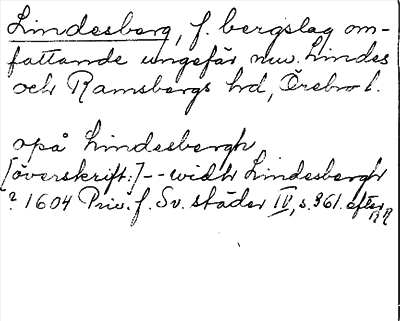 Lindesberg, f. bergslag om-
fattande ungefär nuv. Lindes
och Ramsbergs hd, Örebro l.
opå Lindesbergh
[överskrift:] -- widh Lindesbergh
? 1604 Priv. f. Sv. städer IV, s. 361. efter RR